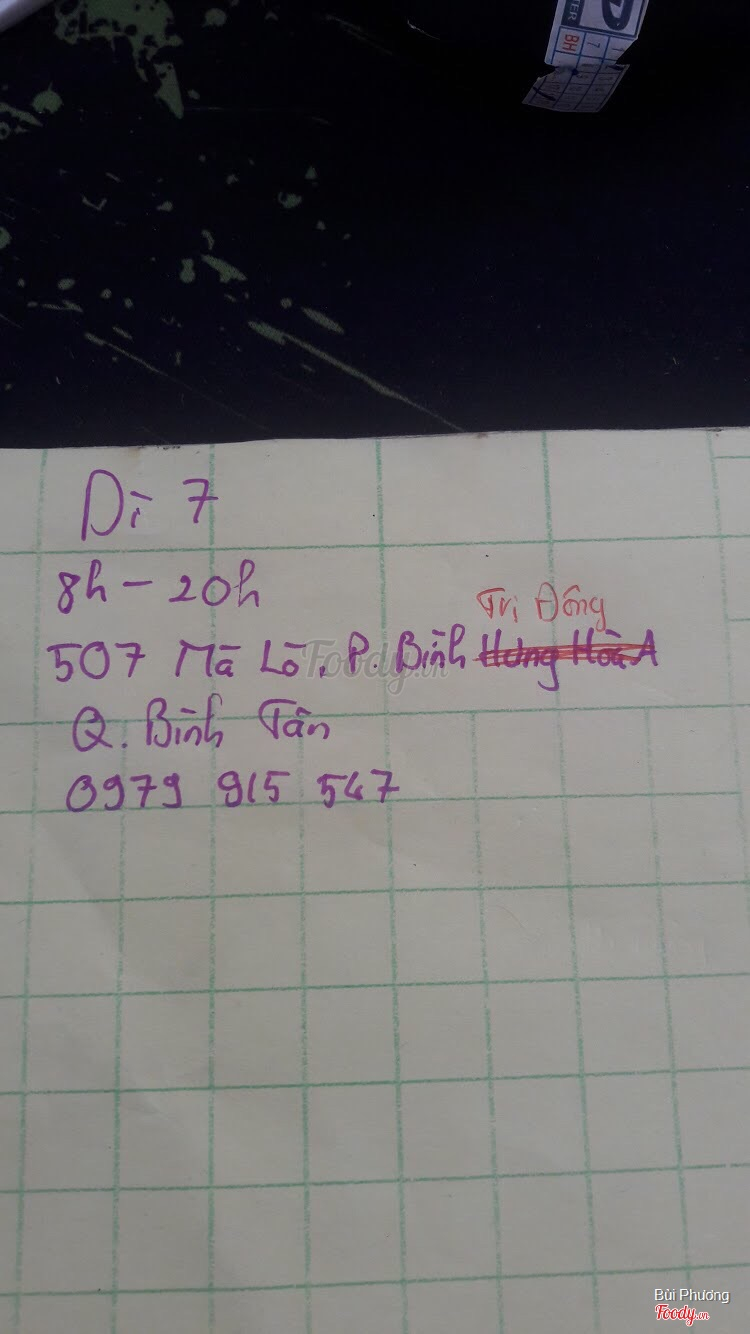 TER
8H
7
Dì 7
8h - 20h
Trị Đông
507 Mã Lò, P. Bình Hưng Hòa A
Q. Bình Tân
0979 915 547
Foody.vn
Bùi Phương
Foody.vn